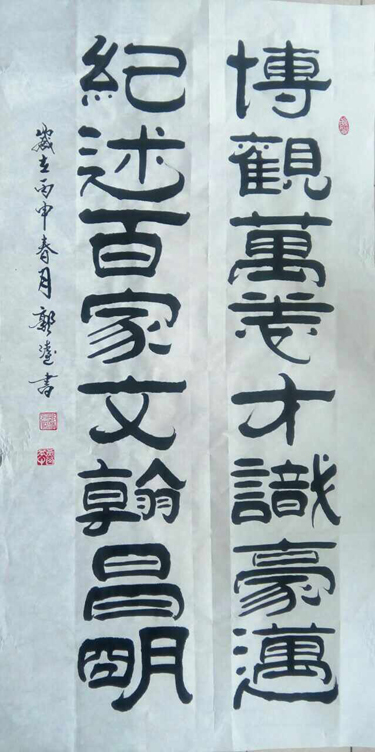 博觀萬才識豪邁
紀述百家文翰昌明
歲在丙申春月郭書